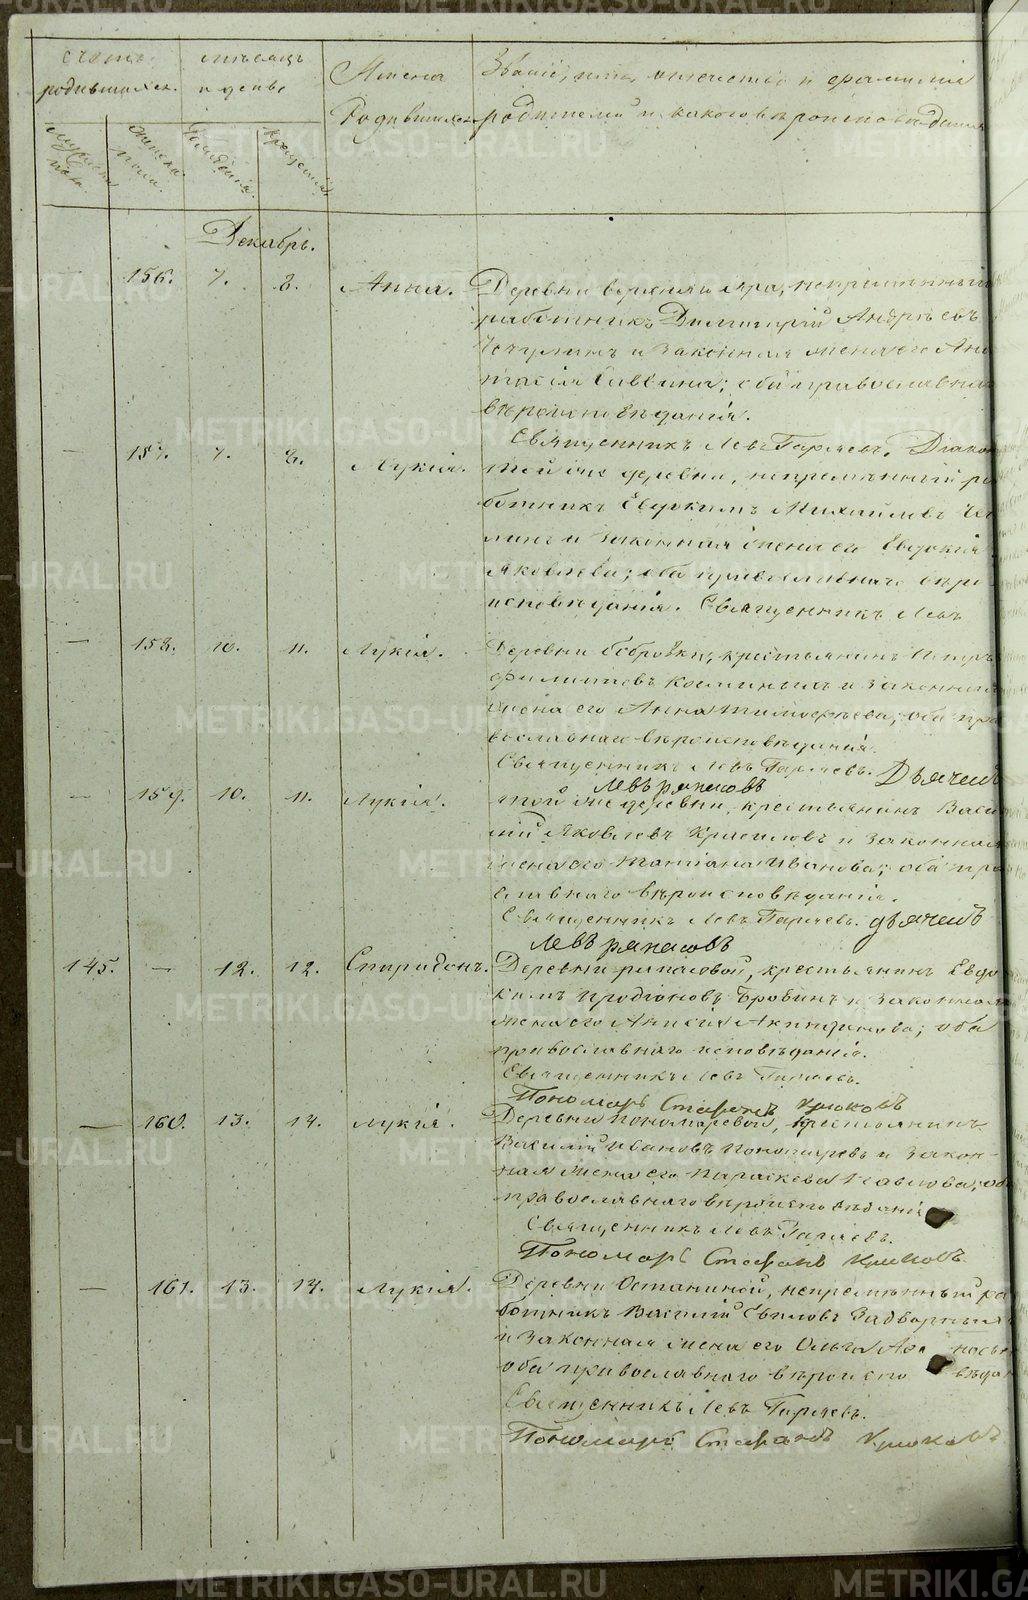 Счетъ родившихся.
мѣсяцъ и день
Имена Родившихся
Званіе, имя, отчество и фамилія
родителей и какого вѣроисповѣданія
мужеска пола.
женска пола.
рожденія.
крещенія.
Декабрь.
— 156. 7. 8. Анна. Деревни непремѣнный
работникъ Димитрій Андреевъ
и законная жена его Ана
стасія Саввина; оба православнаго
вѣроисповѣданія.
Священникъ Левъ Гаряевъ. Діаконъ
— 157. 7. 8. Лукія. Той же деревни, непремѣнный ра
ботникъ Евдокимъ Михайловъ
и законная жена его Евдокія
Яковлева; оба православнаго вѣро
исповѣданія. Священникъ Левъ
— 158. 10. 11. Лукія. Деревни Бобровки, крестьянинъ Петръ
Филиповъ и законная
жена его Анна Тимофѣева; оба пра
вославнаго вѣроисповѣданія.
Священникъ Левъ Гаряевъ. Дьячекъ
Левъ
— 159. 10. 11. Лукія. той же деревни, крестьянинъ Васи
лій Яковлевъ и законная
жена его Татіана Иванова; оба пра
славнаго вѣроисповѣданія.
Священникъ Левъ Гаряевъ. дьячекъ
Левъ
145. — 12. 12. Спиридонъ. Деревни крестьянинъ Евдо
кимъ Продіоновъ и законная
жена его Анисія Акинфиева; оба
православнаго исповѣданія.
Священникъ Левъ Гаряевъ.
Пономарь Стефанъ Крюковъ
— 160. 13. 14. Лукія. Деревни Пономаревой, крестьянинъ
Василій Ивановъ Пономаревъ и закон-
ная жена его Параскева Павлова; оба
православнаго вѣроисповѣдані
Священникъ Левъ Гаряевъ.
Пономарь Стефанъ Крюковъ
— 161. 13. 14. Лукія. Деревни Останиной, непремѣнный ра
ботникъ Василій Задворныхъ
и законная жена его Ольга
оба православнаго вѣроиспо
Священникъ Левъ Гаряевъ.
Пономарь Стефанъ Крюковъ
METRIKI.GASO-URAL.RU